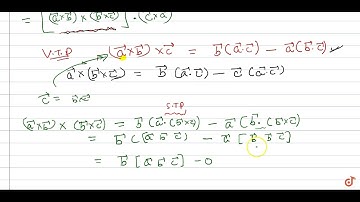 = [(a⃗×b⃗) × (b⃗×c⃗)] · (c⃗×a⃗)
V.T.P (a⃗×b⃗) × c⃗ = b⃗(a⃗·c⃗) − a⃗(b⃗·c⃗)
a⃗×(b⃗×c⃗) = b⃗(a⃗·c⃗) − c⃗(a⃗·b⃗)
c⃗ = b⃗×c⃗
S.T.P
(a⃗×b⃗) × (b⃗×c⃗) = b⃗(a⃗·(b⃗×c⃗)) − a⃗(b⃗·(b⃗×c⃗))
= b⃗(a⃗ b⃗ c⃗) − a⃗[b⃗ b⃗ c⃗]
= b⃗[a⃗ b⃗ c⃗] − 0